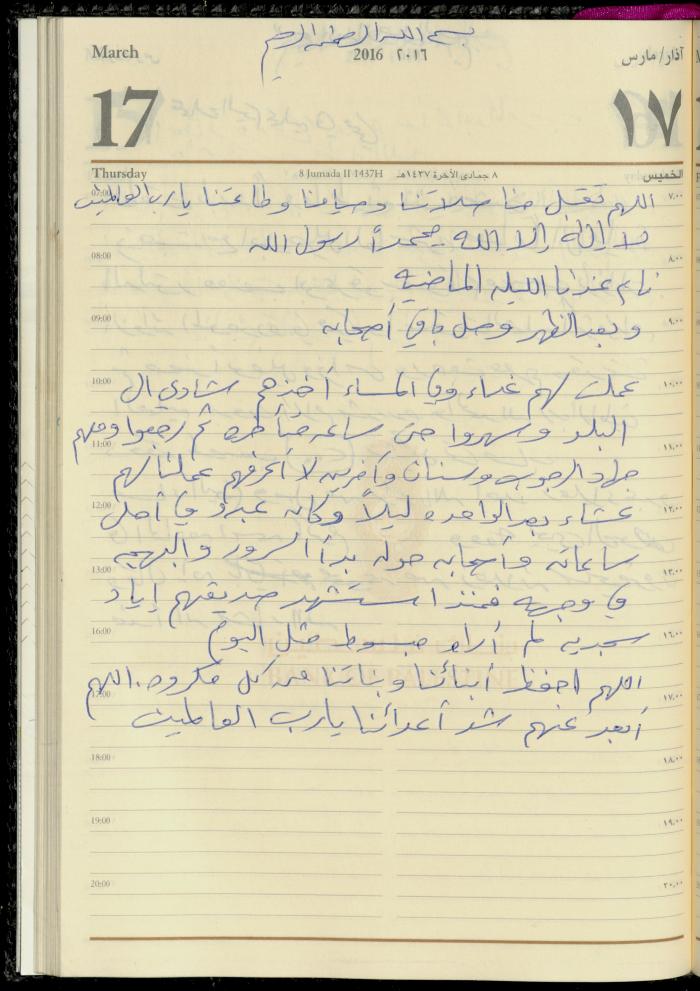 بسم الله الرحمن الرحيم
March
2016 ٢٠١٦
آذار/ مارس
17
١٧
Thursday
8 Jumada II 1437H
٨ جمادى الآخرة ١٤٣٧هـ
الخميس
07:00 اللهم تقبل منا صلاتنا وصيامنا وطاعتنا يارب العالمين ٧،٠٠
لا إله إلا الله محمداً رسول الله
08:00 ٨،٠٠
نايم عندنا الليله الماضيه
09:00 وبعد الظهر وصل باقي أصحابه ٩،٠٠
10:00 عملت لهم غداء وفي المساء أخذهم شادي ال ١٠،٠٠
البلد وسهروا حتى ساعه متأخره ثم رجعوا ومعهم
11:00 ١١،٠٠
جهاد الرجوب وسنان وآخرين لا أعرفهم عملنا لهم
12:00 عشاء بعد الواحده ليلاً وكان عبد في أحلى ١٢،٠٠
ساعاته وأصحابه حوله بدأ السرور والبهجه
13:00 ١٣،٠٠
في وجهه فمنذ استشهد صديقهم إياد
16:00 سجديه لم أراه مبسوط مثل اليوم ١٦،٠٠
اللهم احفظ أبنائنا وبناتنا من كل مكروه. اللهم
17:00 ١٧،٠٠
أبعد عنهم شر أعدائنا يارب العالمين
18:00 ١٨،٠٠
19:00 ١٩،٠٠
20:00 ٢٠،٠٠